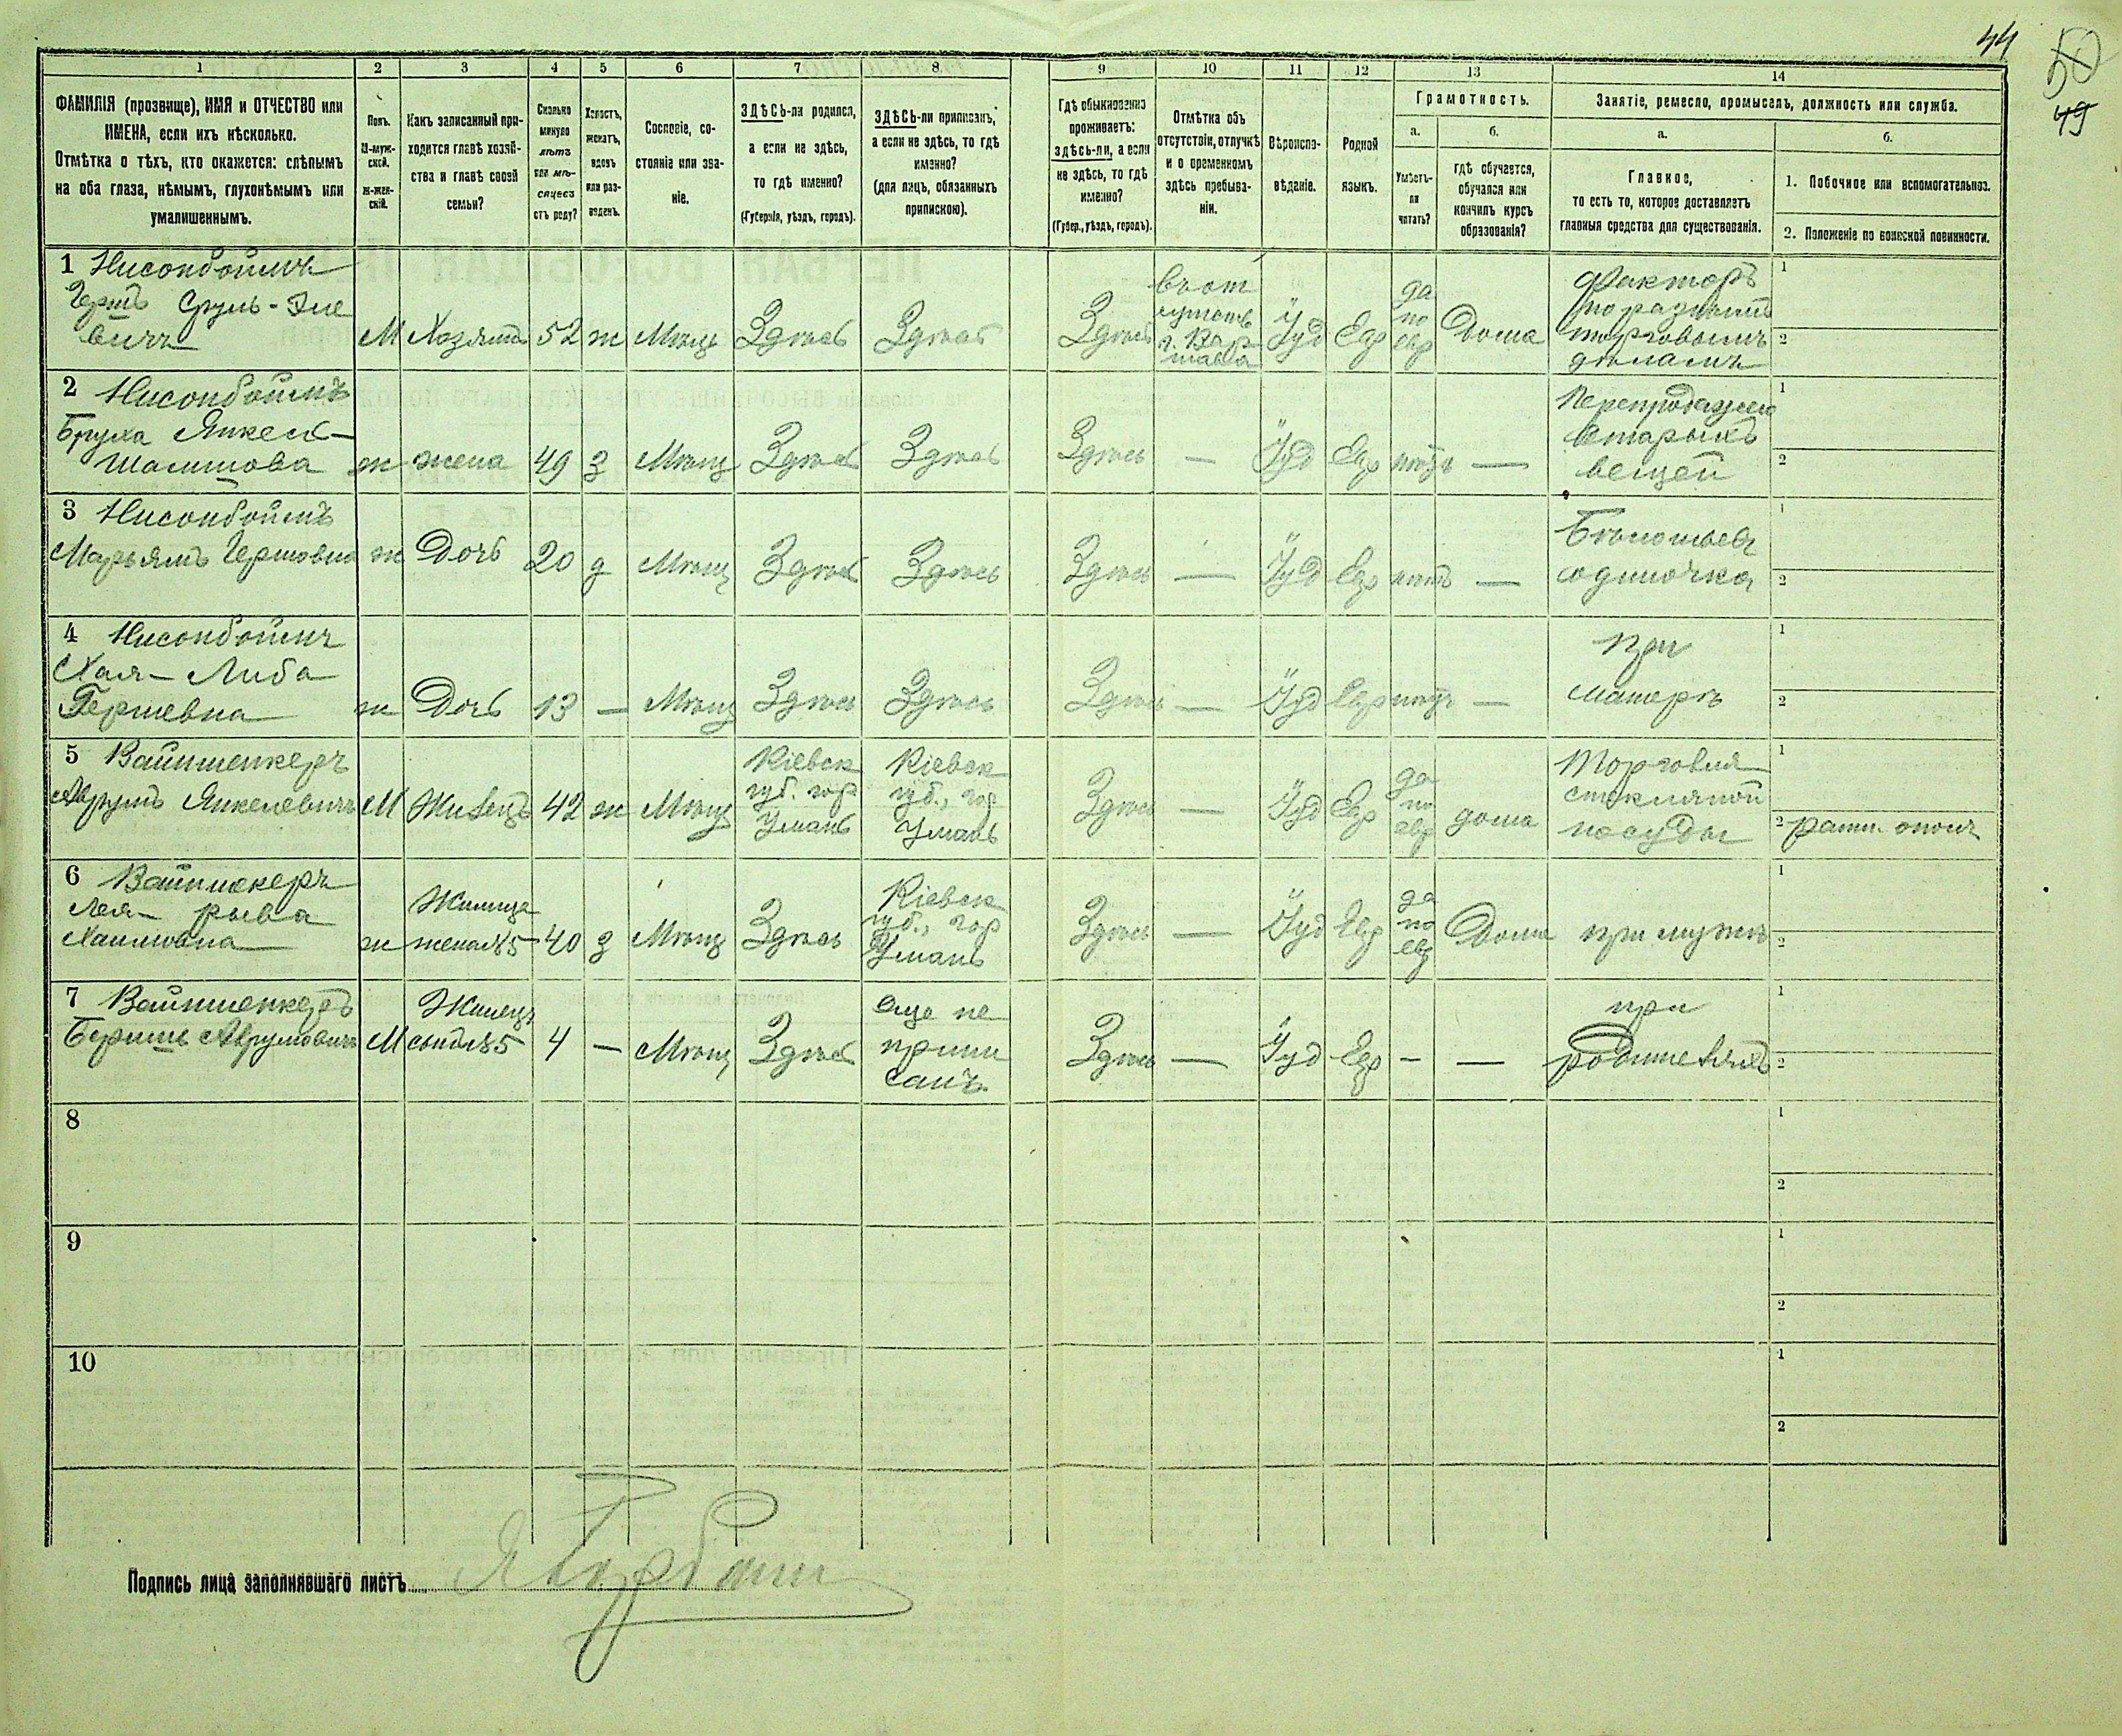 44
50
49
1 2 3 4 5 6 7 8 9 10 11 12 13 14
ФАМИЛІЯ (прозвище), ИМЯ и ОТЧЕСТВО или
ИМЕНА, если ихъ нѣсколько.
Отмѣтка о тѣхъ, кто окажется: слѣпымъ
на оба глаза, нѣмымъ, глухонѣмымъ или
умалишеннымъ.
Полъ.
М-муж-
ской.
Ж-жен-
скій.
Какъ записанный при-
ходится главѣ хозяй-
ства и главѣ своей
семьи?
Сколько
минуло
лѣтъ
или мѣ-
сяцевъ
отъ роду?
Холостъ,
женатъ,
вдовъ
или раз-
веденъ.
Сословіе, со-
стояніе или зва-
ніе.
ЗДѢСЬ-ли родился,
а если не здѣсь,
то гдѣ именно?
(Губернія, уѣздъ, городъ).
ЗДѢСЬ-ли приписанъ,
а если не здѣсь, то гдѣ
именно?
(для лицъ, обязанныхъ
припискою).
Гдѣ обыкновенно
проживаетъ:
здѣсь-ли, а если
не здѣсь, то гдѣ
именно?
(Губер., уѣздъ, городъ).
Отмѣтка объ
отсутствіи, отлучкѣ
и о временномъ
здѣсь пребыва-
ніи.
Вѣроиспо-
вѣданіе.
Родной
языкъ.
Грамотность.
а.
Умѣетъ-
ли
читать?
б.
гдѣ обучается,
обучался или
кончилъ курсъ
образованія?
Занятіе, ремесло, промыселъ, должность или служба.
а.
Главное,
то есть то, которое доставляетъ
главныя средства для существованія.
б.
1. Побочное или вспомогательное.
2. Положеніе по воинской повинности.
1 Нисонбоймъ
Гершъ Сруль-Эле
вичъ
М Хозяинъ 52 ж Мѣщ Здѣсь Здѣсь
Здѣсь
въ от
сутств
г. Вар
шава
Іуд Евр
да
по
евр
Дома
Факторъ
по разнымъ
торговымъ
дѣламъ
1
2
2 Нисонбоймъ
Бруха Янкель-
Шлиомова
ж жена 49 з Мѣщ Здѣсь Здѣсь
Здѣсь — Іуд Евр нѣтъ —
Перепродажею
старыхъ
вещей
1
2
3 Нисонбоймъ
Марьямъ Гершовна ж Дочь 20 д Мѣщ Здѣсь Здѣсь
Здѣсь — Іуд Евр нѣтъ —
Бѣлошвея
одиночка
1
2
4 Нисонбоймъ
Хая-Либа
Гершевна ж Дочь 13 — Мѣщ Здѣсь Здѣсь
Здѣсь — Іуд Евр нѣтъ —
при
матерѣ
1
2
5 Вайншенкеръ
Аврумъ Янкелевичъ М Жилецъ 42 ж Мѣщ
Кіевск
губ. гор
Умань
Кіевск
губ., гор
Умань
Здѣсь — Іуд Евр
да
по
евр
дома
Торговля
стекляной
посуды
1
2 ратн. ополч
6 Вайншенкеръ
Лея-рыва
Хаимовна
ж
Жилица
жена №5 40 з Мѣщ Здѣсь
Кіевск
губ., гор
Умань
Здѣсь — Іуд Евр
да
по
евр
Дома при мужѣ
1
2
7 Вайншенкеръ
Беришъ Аврумовичъ М
Жилецъ
сынъ №5 4 — Мѣщ Здѣсь
еще не
припи
санъ
Здѣсь — Іуд Евр — —
при
родителяхъ
1
2
8
1
2
9
1
2
10
1
2
Подпись лица заполнявшаго листъ